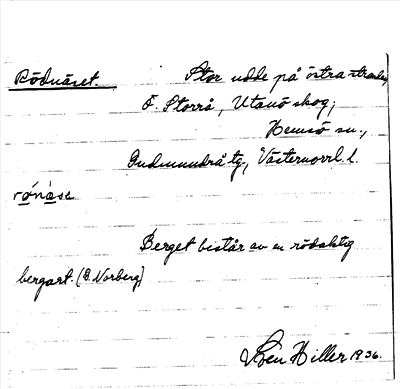 Rödnäset. Stor udde på östra stranden
Ö. Storrå, Utanö skog,
Hemsö sn.,
Gudmundrå tg, Västernorrl. l.
rónàse
Berget består av en rödaktig
bergart. (B. Norberg)
Sten Hiller 1936.